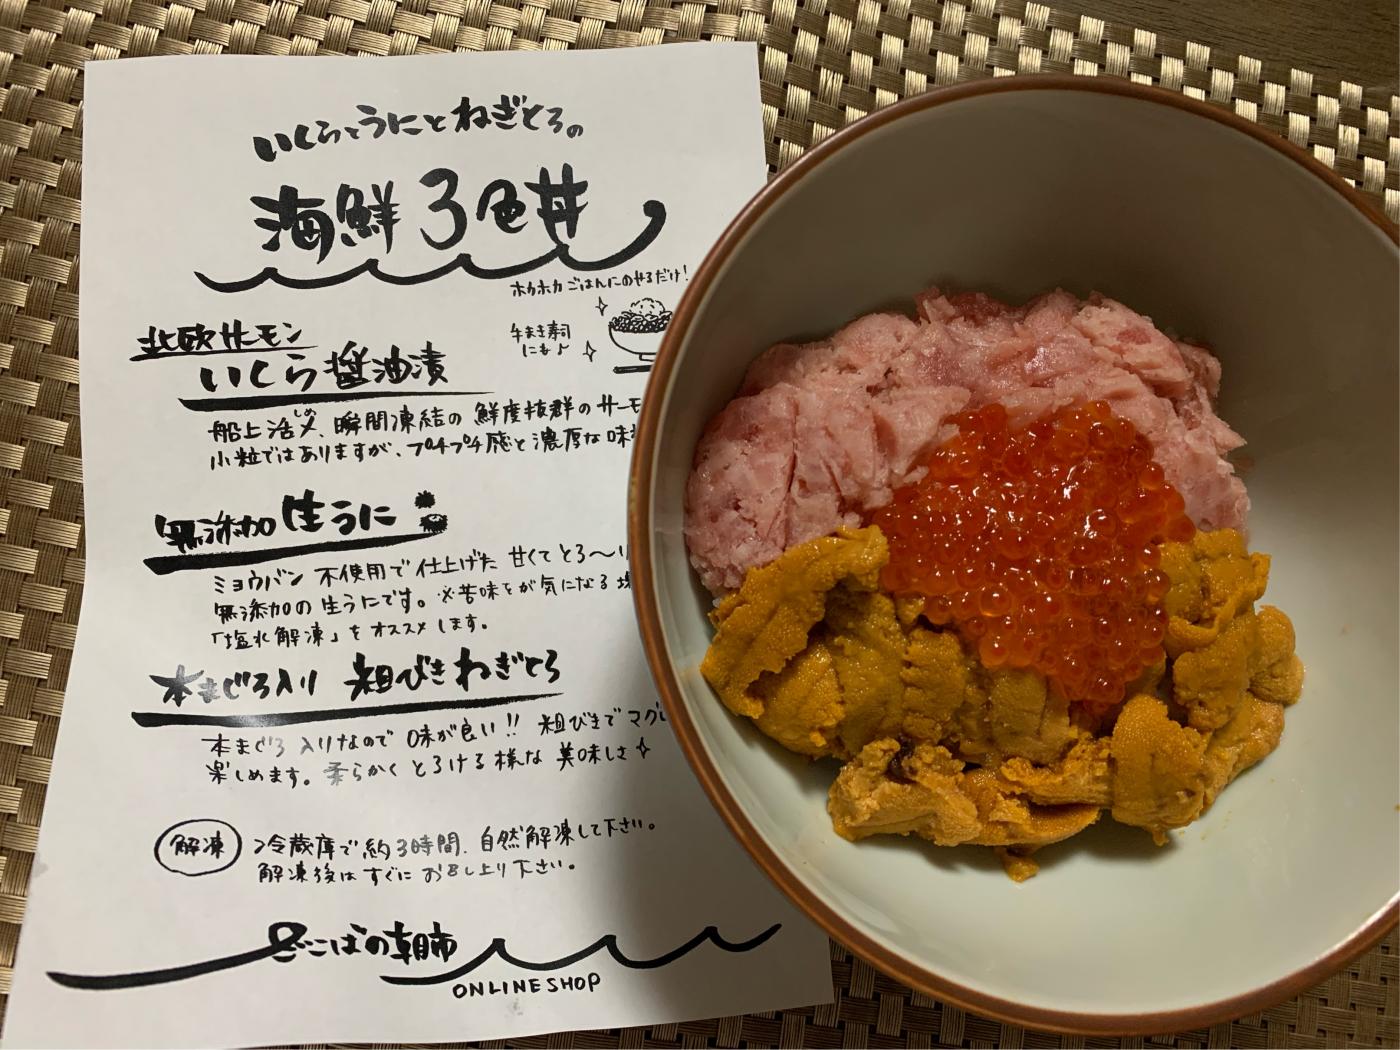 いくらとうにとねぎとろの
海鮮3色丼
ホカホカごはんにのせるだけ!
手まき寿司
にも♪
北欧サーモン
いくら醤油漬
船上活〆、瞬間凍結の鮮度抜群のサーモ
じめ
小粒ではありますが、プチプチ感と濃厚な味
無添加生うに
ミョウバン不使用で仕上げた甘くてとろ〜り
無添加の生うにです。※苦味をが気になる場
「塩水解凍」をオススメします。
本まぐろ入り 粗びきねぎとろ
本まぐろ入りなので味が良い!!粗びきでマグ
楽しめます。柔らかくとろける様な美味しさ✧
解凍
冷蔵庫で約3時間、自然解凍して下さい。
解凍後はすぐにお召し上り下さい。
ごこばの朝市
ONLINESHOP